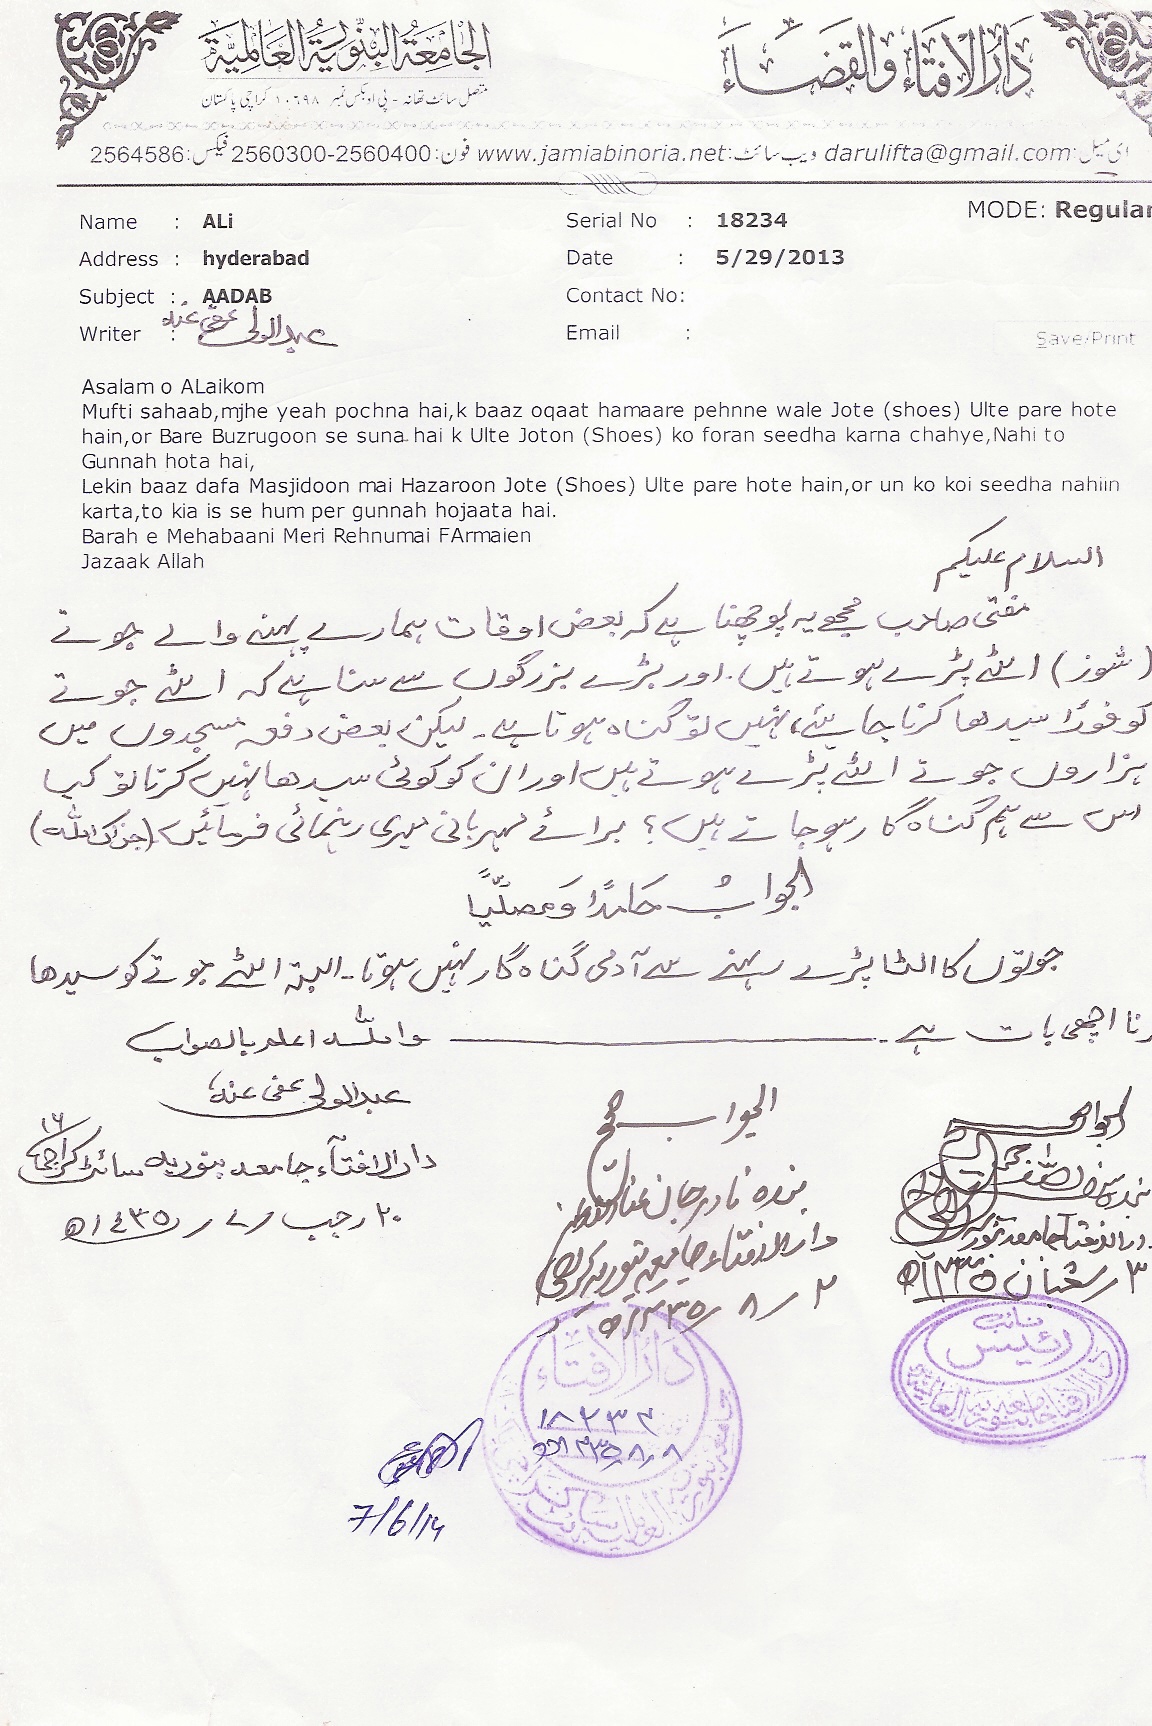 دَارُالافتَاء والقضَاء
الجَامعَة البنّوريَة العَالميَّة
متصل سائٹ تھانہ - پی او بکس نمبر ۱۰۶۹۸ کراچی پاکستان
ای میل: darulifta@gmail.com ویب سائٹ: www.jamiabinoria.net فون: 2560300-2560400 فیکس: 2564586
MODE: Regular
Name : ALi Serial No : 18234
Address : hyderabad Date : 5/29/2013
Subject : AADAB Contact No:
Writer : عبدالولی عفی عنہ Email :
Save/Print
Asalam o ALaikom
Mufti sahaab,mjhe yeah pochna hai,k baaz oqaat hamaare pehnne wale Jote (shoes) Ulte pare hote
hain,or Bare Buzrugoon se suna hai k Ulte Joton (Shoes) ko foran seedha karna chahye,Nahi to
Gunnah hota hai,
Lekin baaz dafa Masjidoon mai Hazaroon Jote (Shoes) Ulte pare hote hain,or un ko koi seedha nahiin
karta,to kia is se hum per gunnah hojaata hai.
Barah e Mehabaani Meri Rehnumai FArmaien
Jazaak Allah
السلام علیکم
مفتی صاحب مجھے یہ پوچھنا ہے کہ بعض اوقات ہمارے پہننے والے جوتے
(شوز) الٹے پڑے ہوتے ہیں۔ اور بڑے بزرگوں سے سنا ہے کہ الٹے جوتے
کو فوراً سیدھا کرنا چاہیئے، نہیں تو گناہ ہوتا ہے۔ لیکن بعض دفعہ مسجدوں میں
ہزاروں جوتے الٹے پڑے ہوتے ہیں اور ان کو کوئی سیدھا نہیں کرتا تو کیا
اس سے ہم گناہ گار ہوجاتے ہیں؟ برائے مہربانی میری رہنمائی فرمائیں (جزاک اللہ)
الجوابُ حَامدًا وَمصلّیًا
جوتوں کا الٹا پڑے رہنے سے آدمی گناہ گار نہیں ہوتا۔ البتہ الٹے جوتے کو سیدھا
رنا اچھی بات ہے۔ واللہ اعلم بالصواب
عبدالولی عفی عنہ
دارالافتاء جامعہ بنوریہ سائٹ کراچی ۱۶
۲۰ رجب / ۷ / ۱۴۳۵ھ
الجواب صحیح
بندہ نادر جان عفا اللہ عنہ
دارالافتاء جامعہ بنوریہ کراچی
۲ / ۸ / ۱۴۳۵ھ
الجواب
دارالافتاء جامعہ بنوریہ
۳ شعبان ۱۴۳۵ھ
نائب
رئیس
دارالافتاء جامعہ بنوریہ العالمیہ
دارالافتاء
۱۸۲۳۴
۸/۸/۱۴۳۵ھ
7/6/14